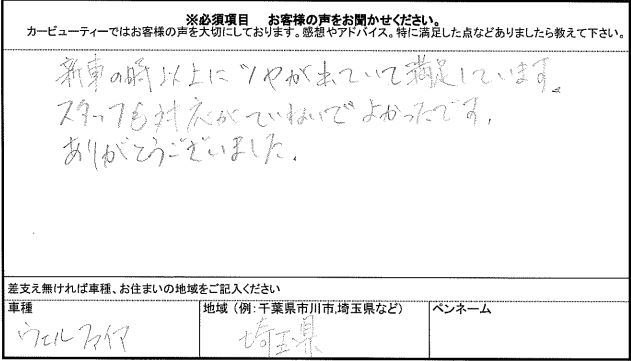 ※必須項目　お客様の声をお聞かせください。
カービューティーではお客様の声を大切にしております。感想やアドバイス。特に満足した点などありましたら教えて下さい。
新車の時以上にツヤが出ていて満足しています。
スタッフも対応がていねいでよかったです。
ありがとうございました。
差支え無ければ車種、お住まいの地域をご記入ください
車種
地域（例：千葉県市川市,埼玉県など）
ペンネーム
ヴェルファイア
埼玉県